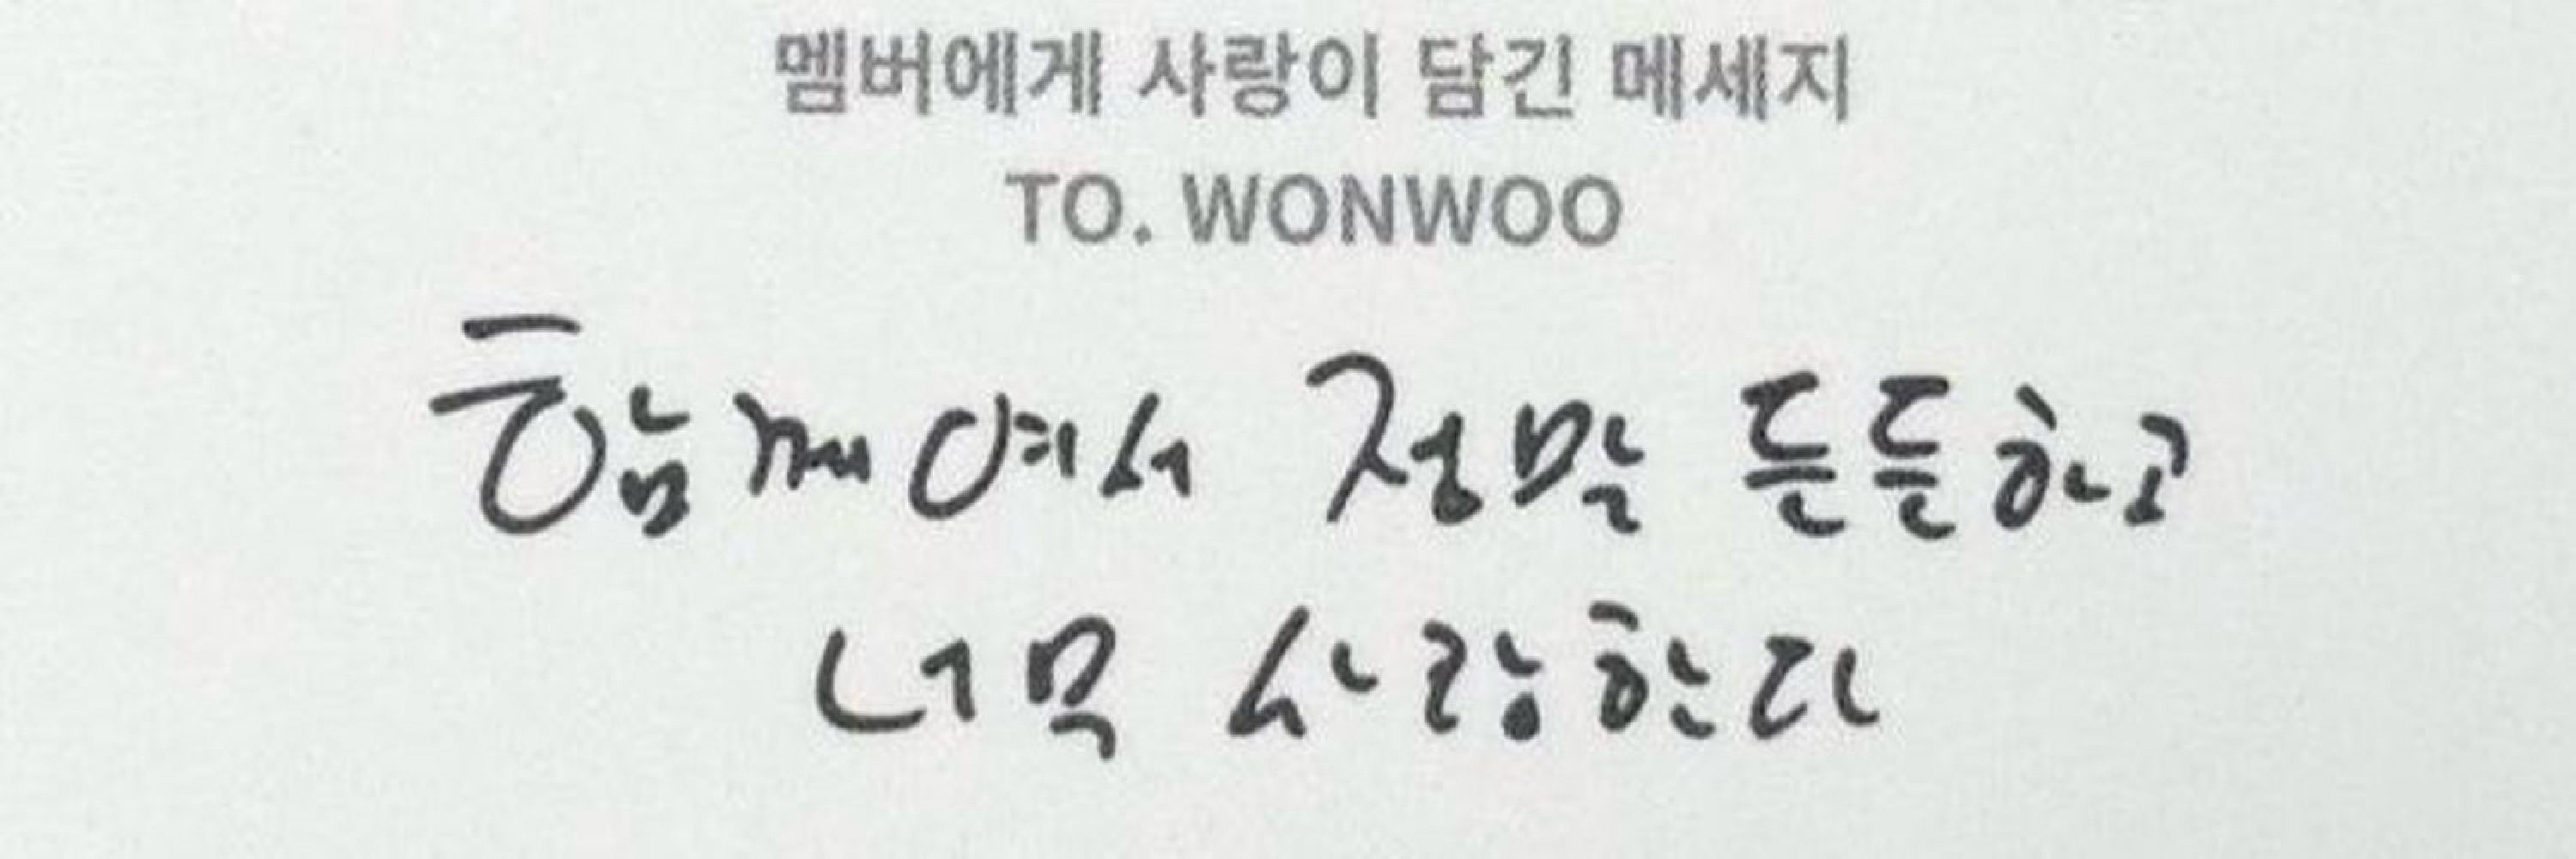 멤버에게 사랑이 담긴 메세지
TO. WONWOO
함께여서 정말 든든하고
너무 사랑한다